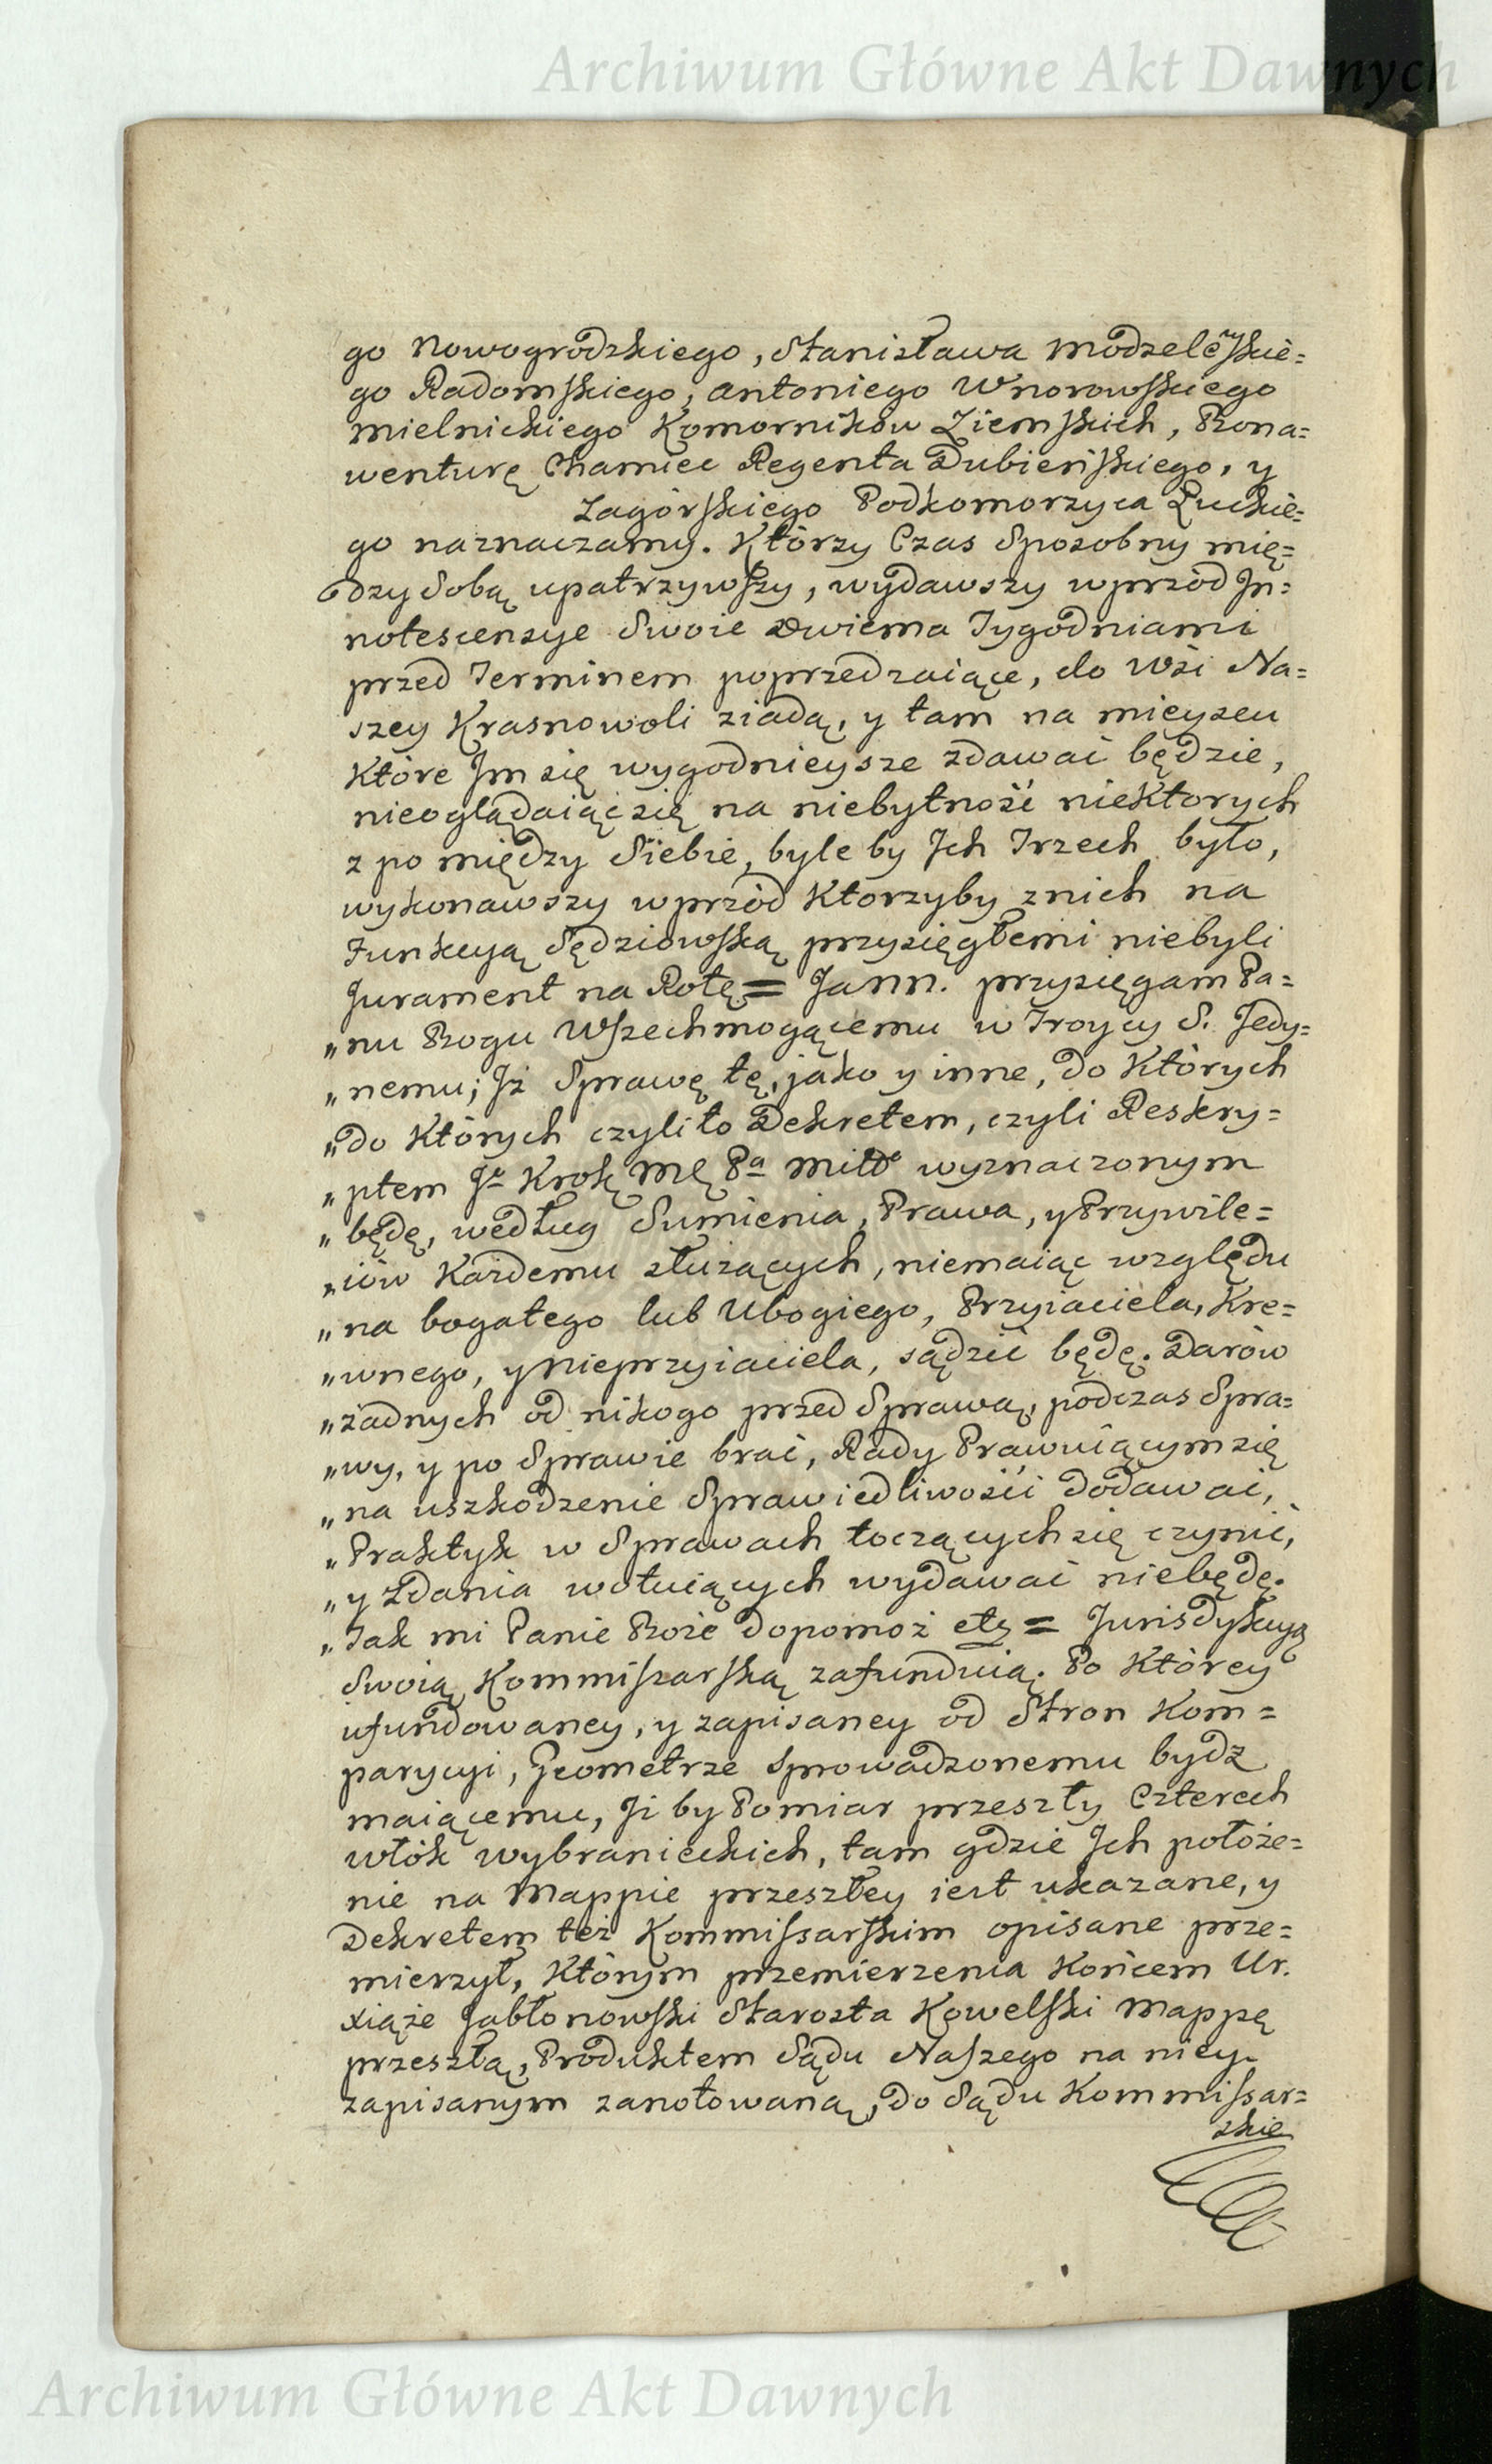 Archiwum Główne Akt Dawnych
go Nowogrodzkiego, Stanisława Modzeleẅskie=
go Radomskiego, Antoniego Wnorowskiego
Mielnickiego Komorników Ziemskich, Bona=
wenturę Chamiec Regenta Dubieńskiego, y
Zagórskiego Podkomorzyca Łuckie=
go naznaczamy. Którzy Czas Sposobny mię=
dzy Sobą upatrzywszy, wydawszy wprzód In=
notescensye Swoie Dwiema Tygodniami
przed Terminem poprzedzaiące, do Wsi Na=
szey Krasnowoli ziadą, y tam na mieyscu
Które Im się wygodnieysze zdawać będzie,
nieoglądaiąć się na niebytność niektorych
z po między Siebie, byle by Ich Trzech było,
wykonawszy wprzód Ktorzyby znich na
Funkcyą Sędziowską przysięgłemi niebyli
Jurament na Rotę = Ja NN. przysięgam Pa=
„nu Bogu Wszechmogącemu w Troycy S. Jedy=
„nemu; Jż Sprawę tę, jako y inne, do Których
„do Których czyli to Dekretem, czyli Reskry=
„ptem Jᵒ Krolę Mę Pᵃ Miłᵒ wyznaczonym
„będę, według Sumienia, Prawa, y Przywile=
„iów Każdemu służących, niemaiąc względu
„na bogatego lub Ubogiego, Przyiaciela, Kre=
„wnego, y Nieprzyiaciela, sądzić będę. Darów
„żadnych od nikogo przed Sprawą, podczas Spra=
„wy, y po Sprawie brać, Rady Prawuiącym się
„na uszkodzenie Sprawiedliwości dodawać,
„Praktyk w Sprawach toczących się czynić,
„y Zdania wotuiących wydawać niebędę.
„Tak mi Panie Boże dopomoż etc = Jurisdykcyą
Swoią Kommissarską zafunduią. Po Którey
ufundowaney, y zapisaney od Stron Kom=
parycyi, Geometrze sprowadzonemu bydz
maiącemu, Ji by Pomiar przeszły Czterech
włók wybranieckich, tam gdzie Ich położe=
nie na Mappie przeszłey iest ukazane, y
Dekretem też Kommissarskim opisane prze=
mierzył, Którym przemierzenia Końcem Ur.
Xiąże Jabłonowski Starosta Kowelski Mappę
przeszłą, Produktem Sądu Naszego na niey
zapisanym zanotowaną, do Sądu Kommissar=
skie
Archiwum Główne Akt Dawnych